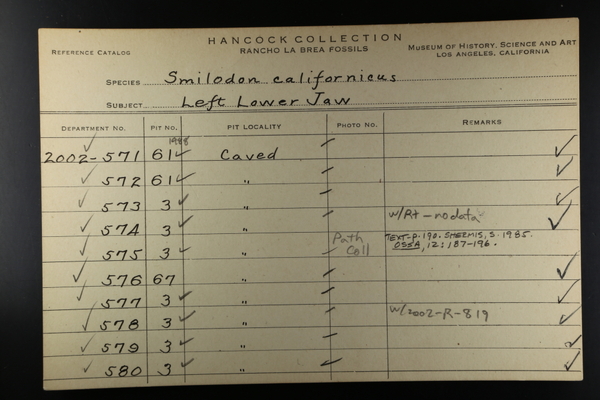 HANCOCK COLLECTION
REFERENCE CATALOG RANCHO LA BREA FOSSILS MUSEUM OF HISTORY, SCIENCE AND ART
LOS ANGELES, CALIFORNIA
SPECIES Smilodon californicus
SUBJECT Left Lower Jaw
DEPARTMENT NO. PIT NO. PIT LOCALITY PHOTO NO. REMARKS
1988
✓ 2002-571 61 ✓ Caved ✓
✓ 572 61 ✓ " ✓
✓ 573 3 ✓ " ✓
✓ 574 3 ✓ " w/Rt - no data ✓
✓ 575 3 ✓ " Path Coll TEXT-p.190. SHERMIS, S. 1985.
OSSA, 12:187-196.
✓ 576 67 " ✓
✓ 577 3 ✓ " ✓
✓ 578 3 ✓ " w/2002-R-819 ✓
✓ 579 3 ✓ " ✓
✓ 580 3 ✓ " ✓